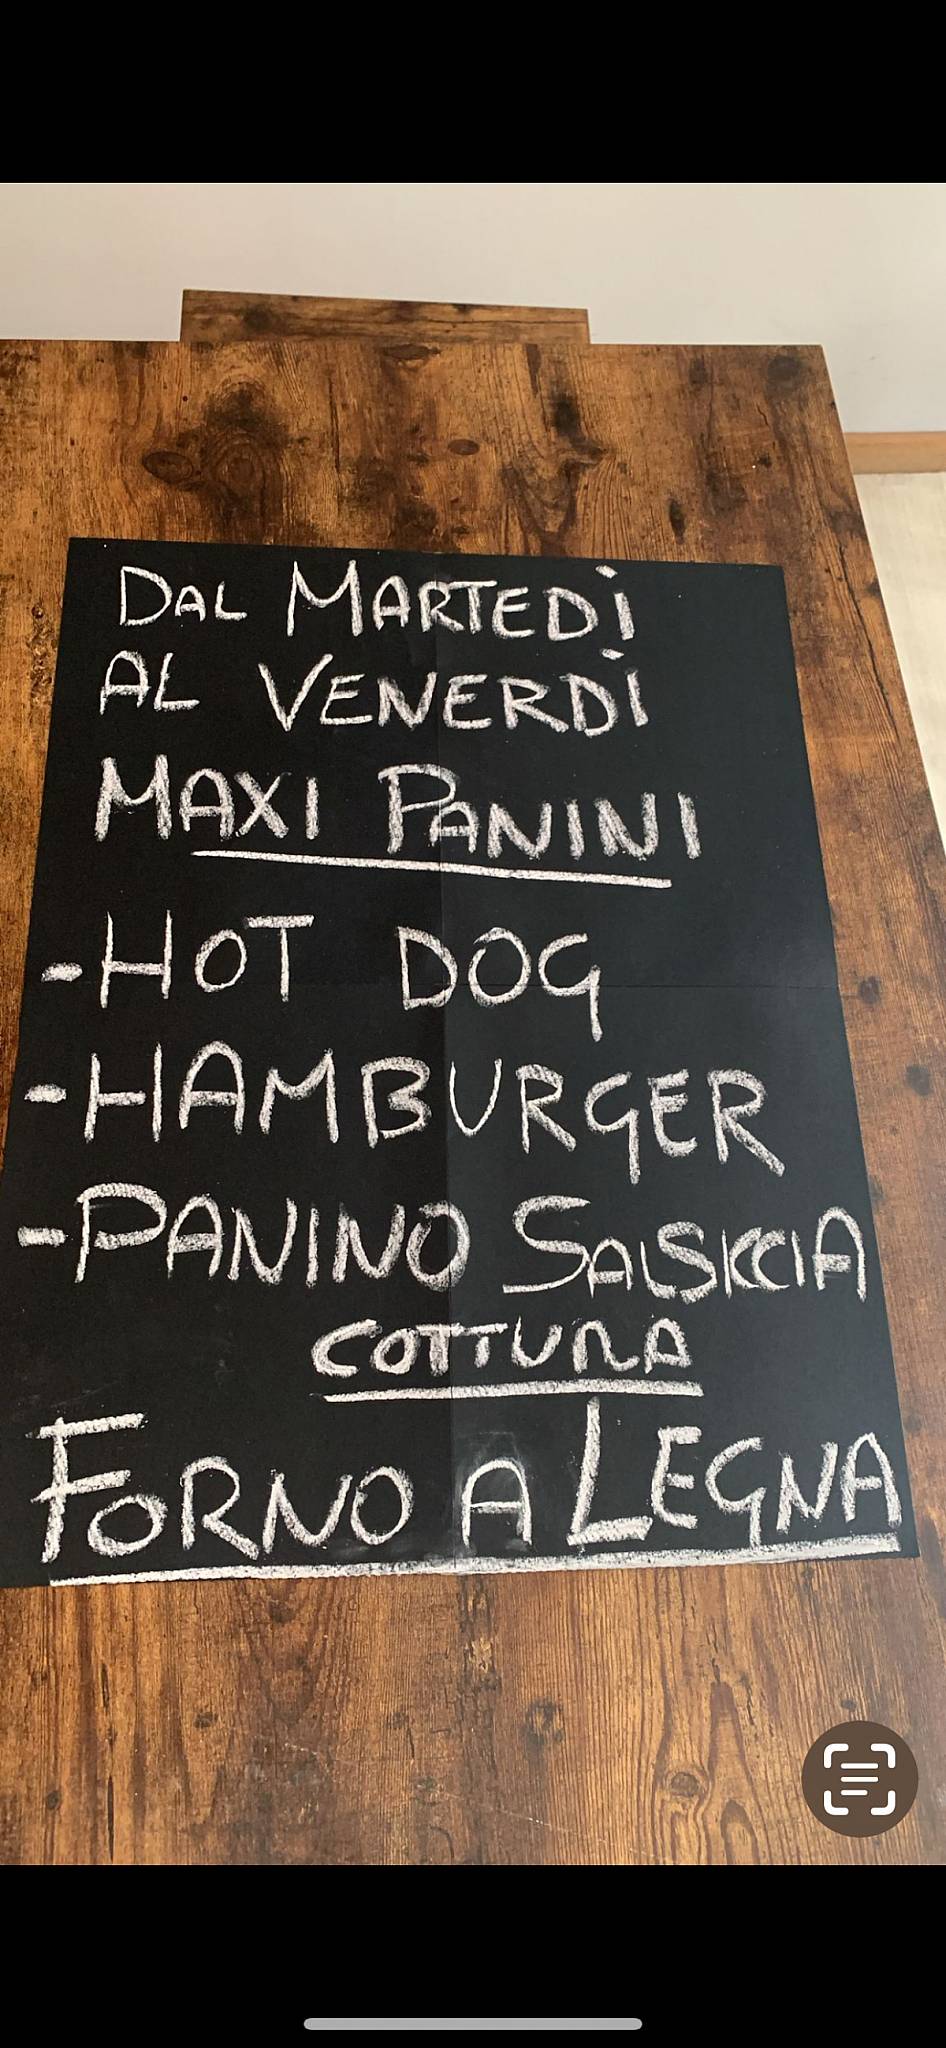 DAL MARTEDÌ
AL VENERDÌ
MAXI PANINI
-HOT DOG
-HAMBURGER
-PANINO SALSICCIA
COTTURA
FORNO A LEGNA